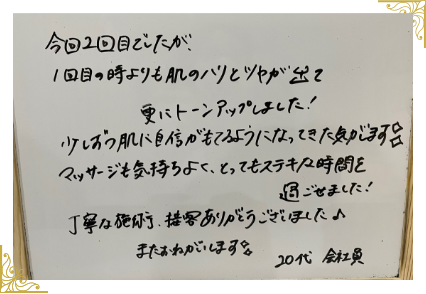 今回2回目でしたが、
1回目の時よりも肌のハリとツヤが出て
更にトーンアップしました！
少しずつ肌に自信がもてるようになってきた気がします☆
マッサージも気持ちよく、とってもステキな時間を
過ごせました！
丁寧な施術、接客ありがとうございました♪
またおねがいします☆
20代 会社員